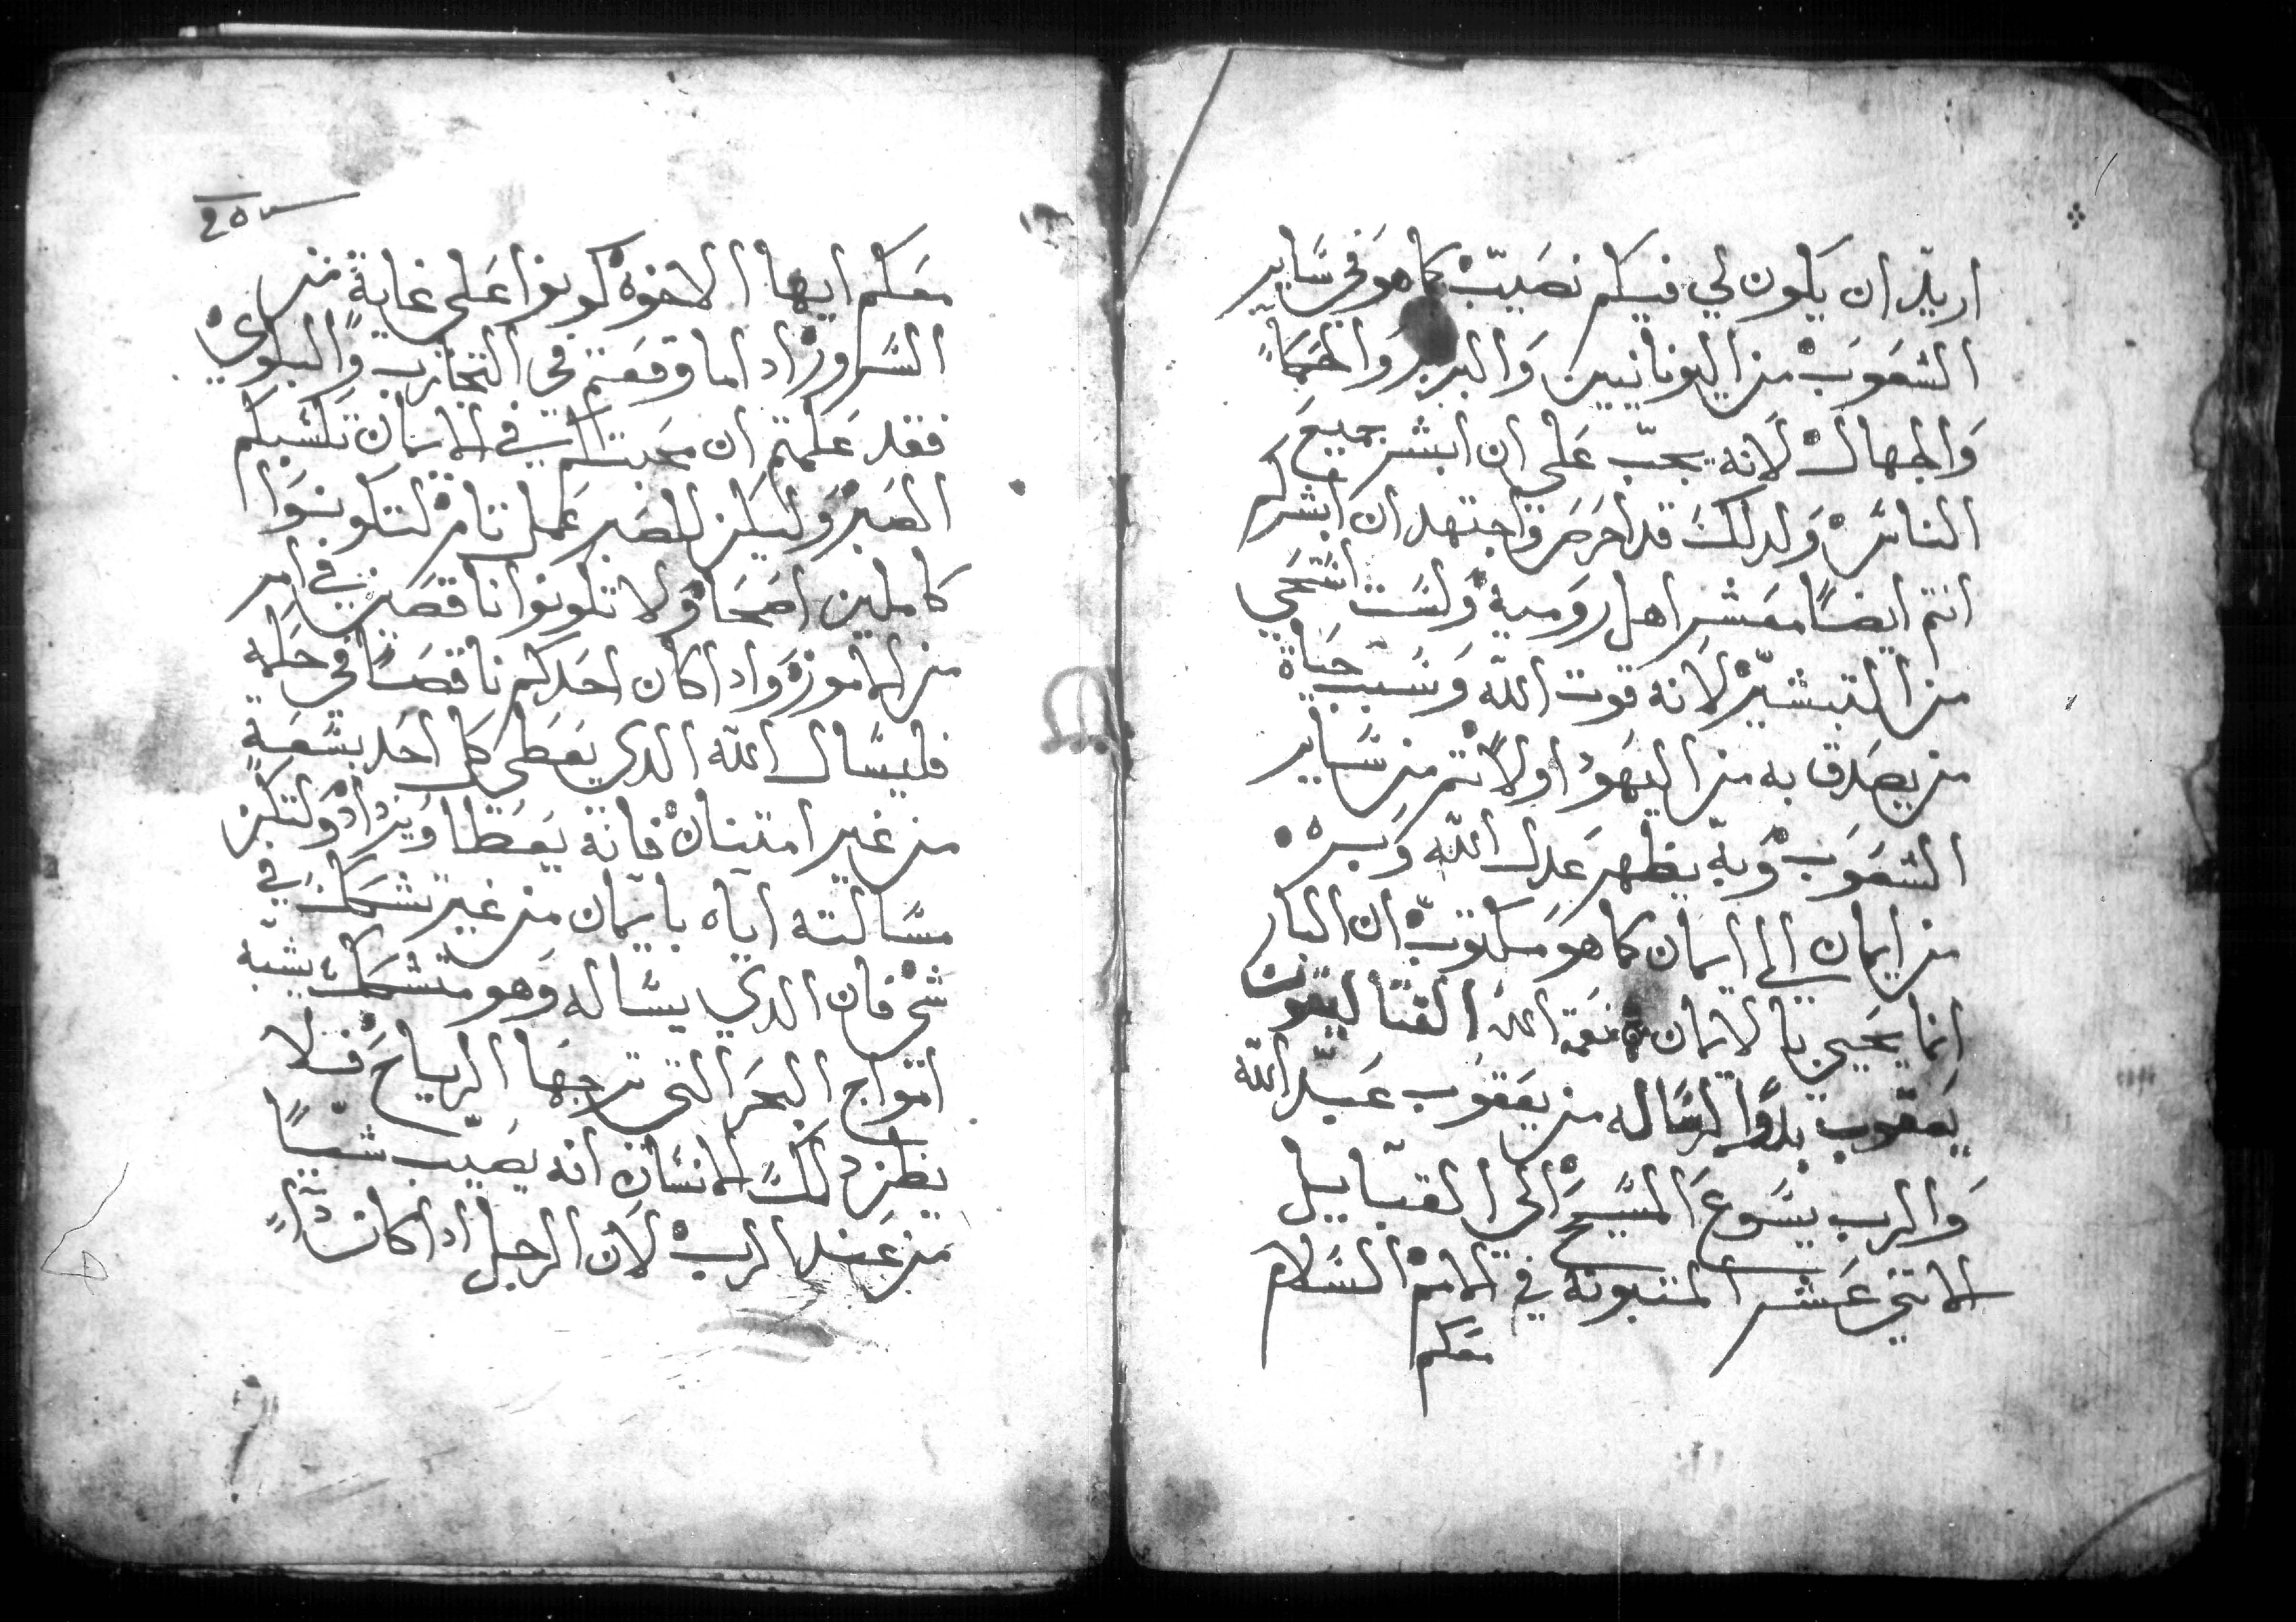 اريد ان يكون لي فيكم نصيب كما هو في ساير
الشعوب من اليونانيين والبربر والحكما
والجهال لانه يجب علي ان ابشر جميع
الناس ولدلك قد احرص واجتهد ان ابشركم
انتم ايضا معشر اهل رومية ولست استحي
من التبشير لانه قوت الله وسبب حياة
من يصدق به من اليهود اولا ثم من ساير
الشعوب وبه يظهر عدل الله وبره
من ايمان الى ايمان كما هو مكتوب ان البار
انما يحيي بالايمان نعمة الله القتاليقون
يعقوب بدو الرساله من يعقوب عبد الله
والرب يسوع المسيح الى القبايل
الاتني عشر المتبوتة في الامم السلام
معكم
معكم ايها الاخوة كونوا على غاية من
السرور اداما وقعتم في التجارب والبلوي
فقد علمتم ان محبتكم في الايمان تكسبكم
الصبر وليكن للصبر عمل تام لتكونوا
كاملين اصحا ولا تكونوا ناقصين في امر
من الامور وادا كان احدكم ناقصا في حكمة
فليسال الله الدي يعطي كل احد بسعة
من غير امتنان فانه يعطا ويزداد ولتكن
مسالته اياه بايمان من غير تشكك في
شي فان الدي يساله وهو متشكك يشبه
امواج البحر التي ترجها الرياح فلا
يظن دلك الانسان انه يصيب شييا
من عند الرب لان الرجل ادا كان دا